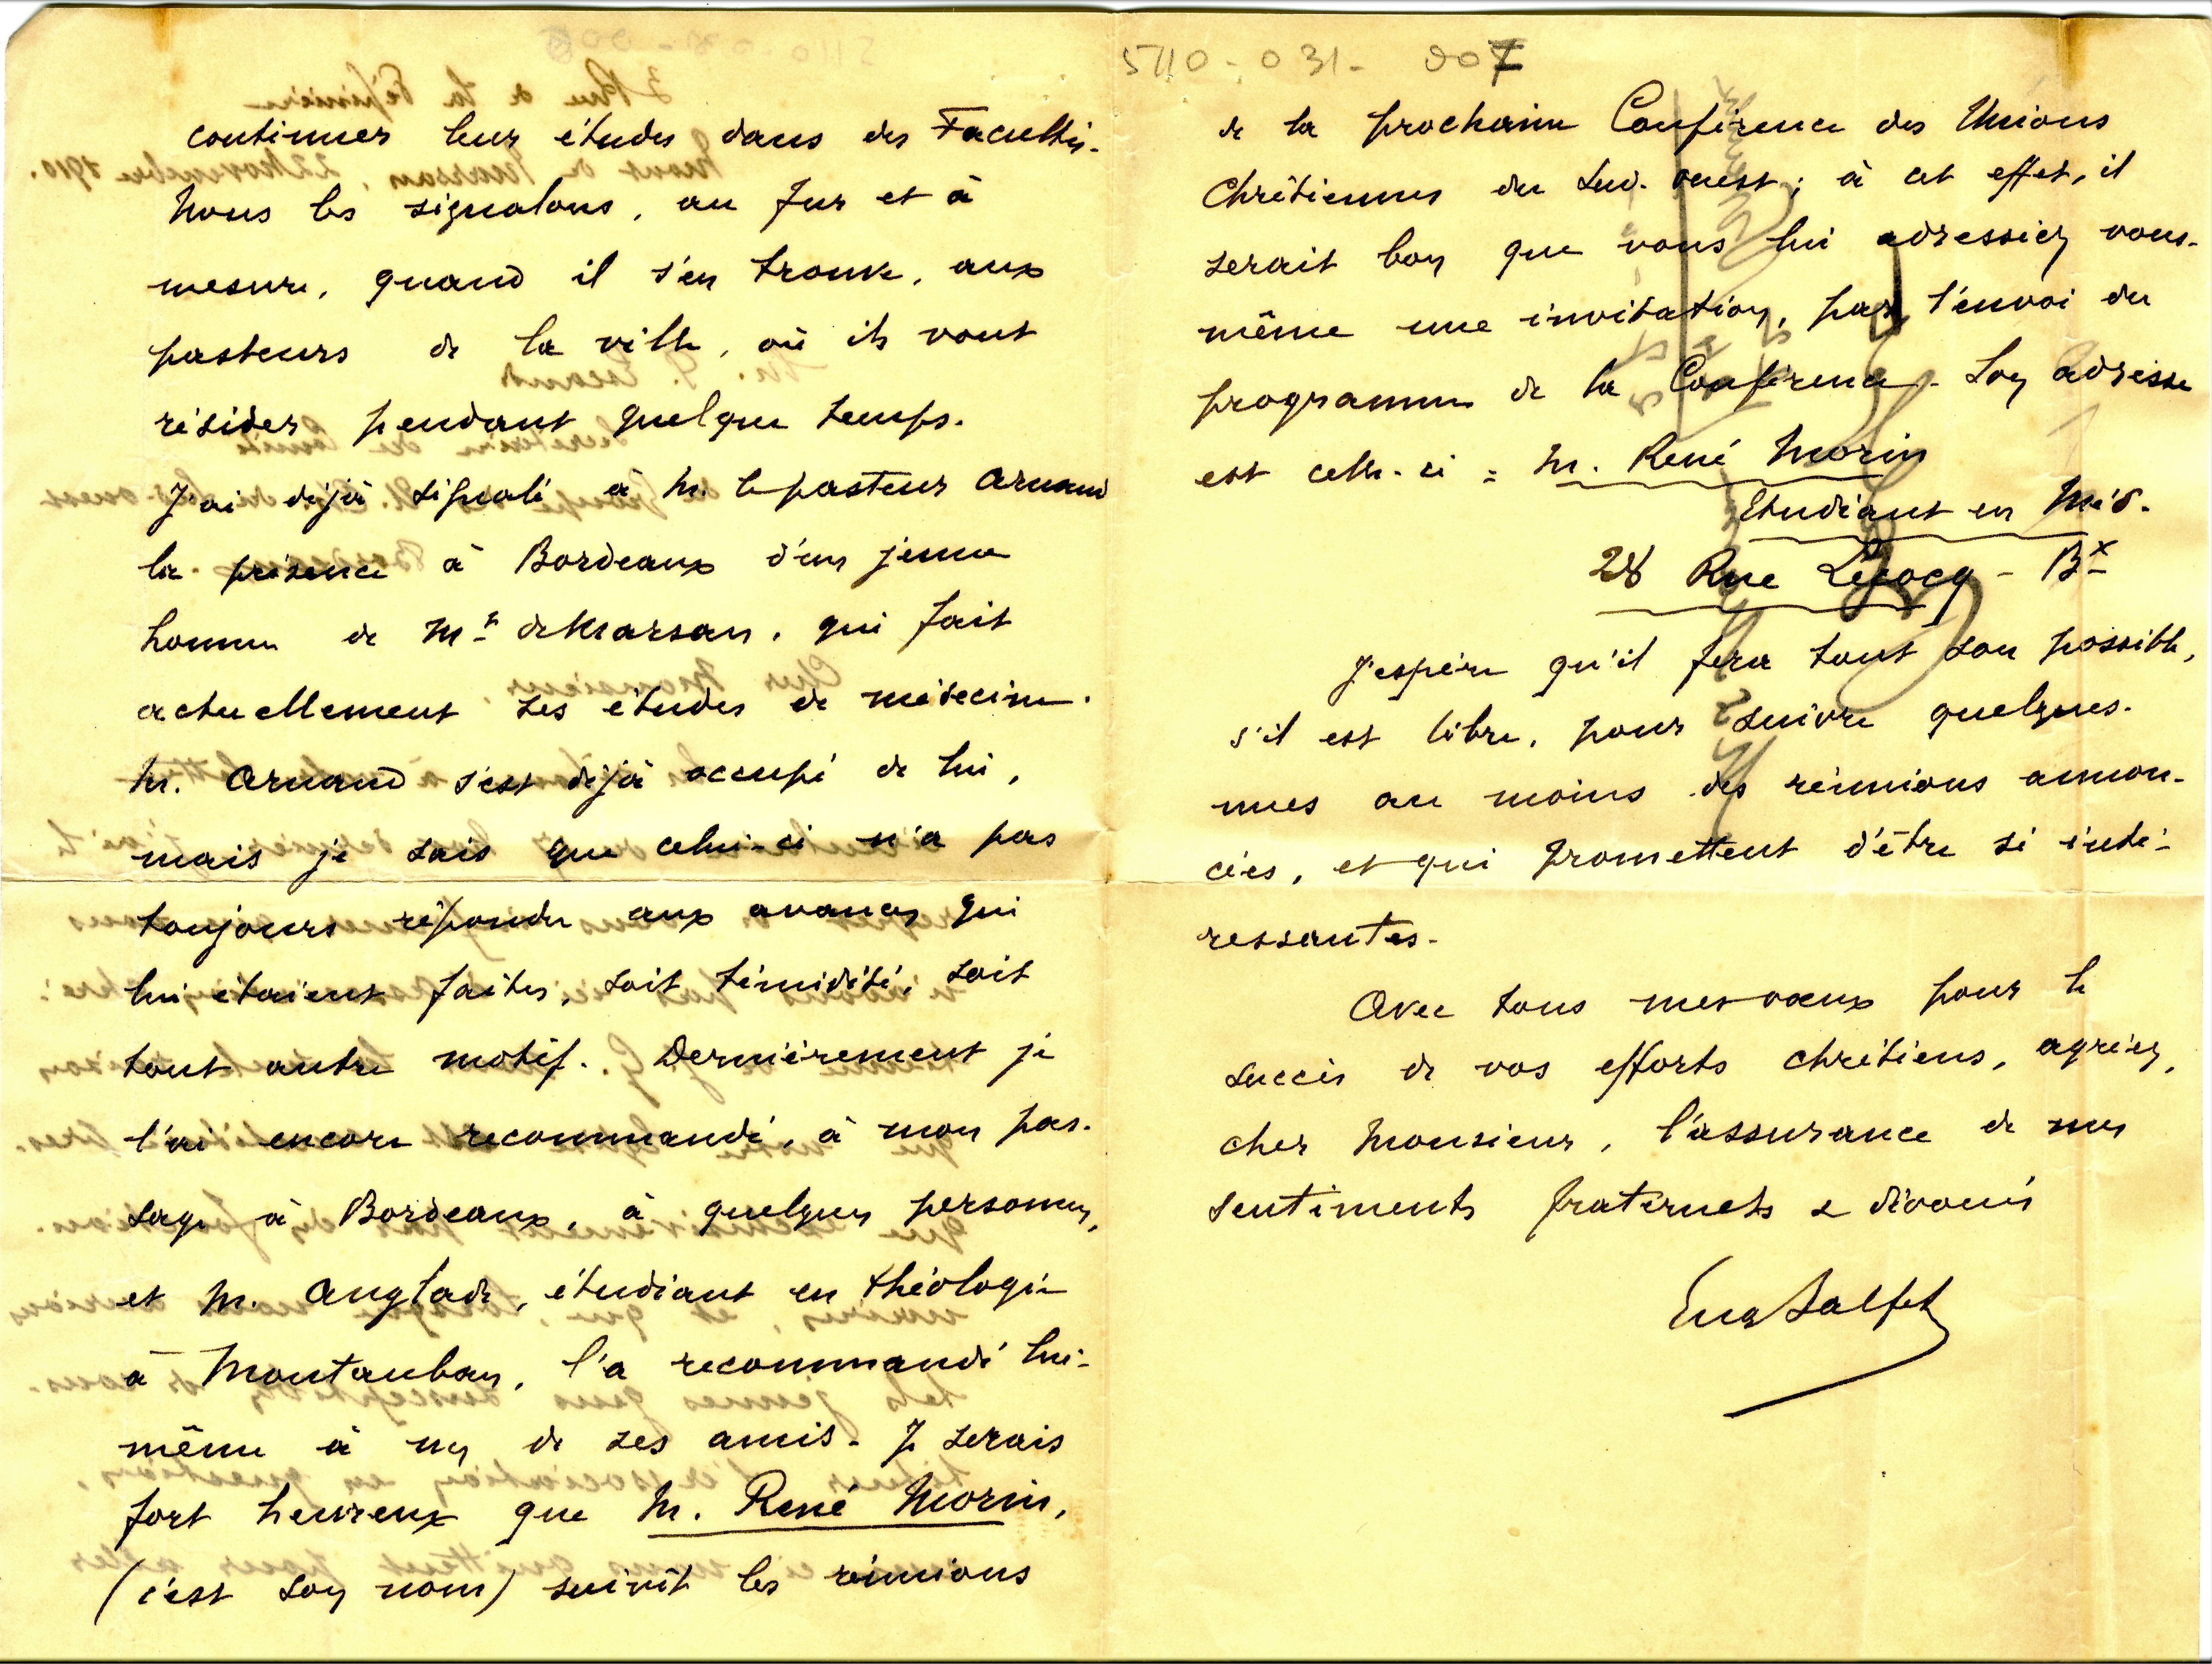 5710-031-007
continuer leur études dans des Facultés.
Nous les signalons, au fur et à
mesure, quand il s'en trouve, aux
pasteurs de la ville, où ils vont
résider pendant quelque temps.
J'ai déjà signalé à M. le pasteur Arnaud
la présence à Bordeaux d'un jeune
homme de Mt de Marsan, qui fait
actuellement ses études de médecine.
M. Arnaud s'est déjà occupé de lui,
mais je sais que celui-ci n'a pas
toujours répondu aux avances qui
lui étaient faites, soit timidité, soit
tout autre motif. Dernièrement je
l'ai encore recommandé, à mon pas-
sage à Bordeaux, à quelques personnes,
et M. Anglade, étudiant en théologie
à Montauban, l'a recommandé lui-
même à un de ses amis. Je serais
fort heureux que M. René Morin,
(c'est son nom) suivît les réunions
de la prochaine Conférence des Unions
Chrétiennes du Sud-Ouest; à cet effet, il
serait bon que vous lui adressiez vous-
même une invitation, par l'envoi du
programme de la Conférence. Son adresse
est celle-ci = M. René Morin
Etudiant en Méd.
28 Rue Lecocq - Bx
J'espère qu'il fera tout son possible,
s'il est libre, pour suivre quelques-
unes au moins des réunions annon-
cées, et qui promettent d'être si inté-
ressantes.
Avec tous mes vœux pour le
succès de vos efforts chrétiens, agréez,
cher Monsieur, l'assurance de mes
sentiments fraternels & dévoués